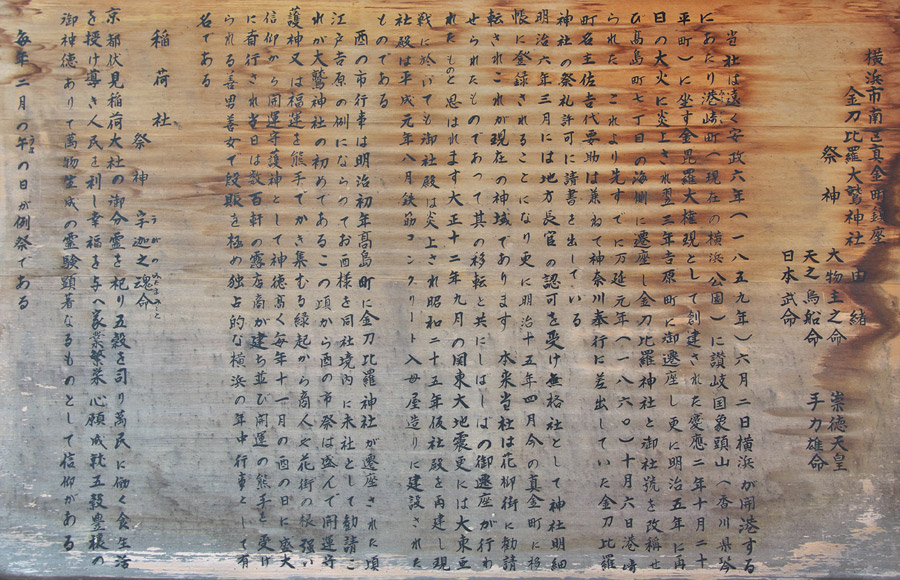 横浜市南区真金町鎮座
金刀比羅大鷲神社 由緒
祭神
大物主之命 崇徳天皇
天之鳥船命 手力雄命
日本武命
当社は遠く安政六年(一八五九年)六月二日横浜が開港する
にあたり港崎町(現在の横浜公園)に讃岐国象頭山(香川県琴
平町)に坐す金毘羅大権現として創建された慶應二年十月二十
日の大火に炎上され翌三年吉原町に御遷座し更に明治五年に再
び高島町七丁目の海側に遷座し金刀比羅神社と御社號を改稱せ
られたこれより先すでに万延元年(一八六〇)十月六日港崎
町名主佐吉代要助は兼ねて神奈川奉行に差出していた金刀比羅
神社の祭礼許可に請書を出している
明治六年三月には地方長官の認可を受け無格社として神社明細
帳に登録されることになり更に明治十五年四月今の真金町に移
転されこれが現在の神域であります 本来当社は花柳街に勧請
せられたものであって其の移転と共にしばしばの御遷座が行わ
れたものと思はれます大正十二年九月の関東大地震更には大東亜
戦に於いても御社殿は炎上され昭和二十五年仮社殿を再建し現
社殿は平成元年八月鉄筋コンクリート入母屋造りに建設された
ものである
酉の市行事は明治初年高島町に金刀比羅神社が遷座された頃
江戸吉原の例にならっておお酉様を同社境内に末社として勧請こ
れが大鷲神社の初めであるこの頃から酉の市祭は盛んで開運守
護神又は福運を熊手でかき集むる緣起から商人や花街の根強い
信仰から開運守護神として神徳高く毎年十一月の酉の日に盛大
に斎行され当日は数百軒の露店商が建ち並び開運の熊手を受け
られる善男善女で殷賑を極め独占的な横浜の年中行事として有
名である
稲荷社
祭神 宇迦之魂命
うがのみたまのみこと
京都伏見稲荷大社の御分霊を祀り五穀を司り萬民に働く食生活
を授け導き人民を利し幸福を与へ家業繁栄心願成就五穀豊穣の
御神徳ありて萬物生成の霊験顕著なるものとして信仰がある
毎年二月の午の日が例祭である